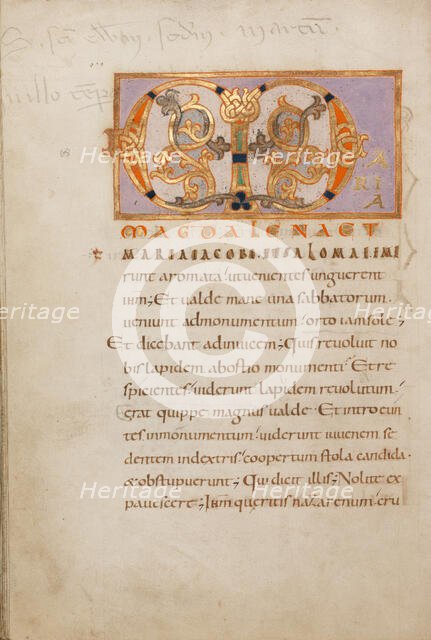 M
ARIA
MAGDALENA ET
MARIA IACOBI. ET SALOMAE EMI
runt aromata; ut uenientes unguerent
ihm; Et ualde mane una sabbatorum.
ueniunt admonumentum; orto iam sole;
Et dicebant adinuicem; Quis reuoluit no
bis lapidem abostio monumenti; Et re
spicientes; uiderunt lapidem reuolutum;
Erat quippe magnus ualde; Et introeun
tes inmonumentum; uiderunt iuuenem se
dentem indextris; coopertum stola candida.
& obstupuerunt; Qui dicit illis; Nolite ex
pauescere; Ihm queritis nazarenum; cru
Heritage
Heritage
Heritage
Heritage
Heritage
Heritage
Heritage
C